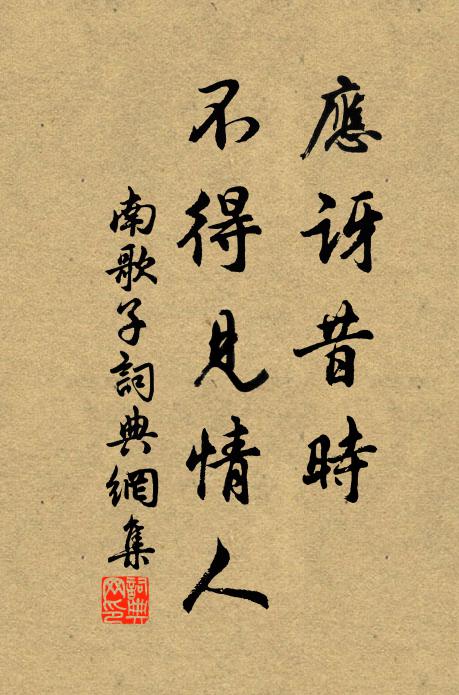 應訝昔時
不得見情人
南歌子詞典網集
詞典
网印